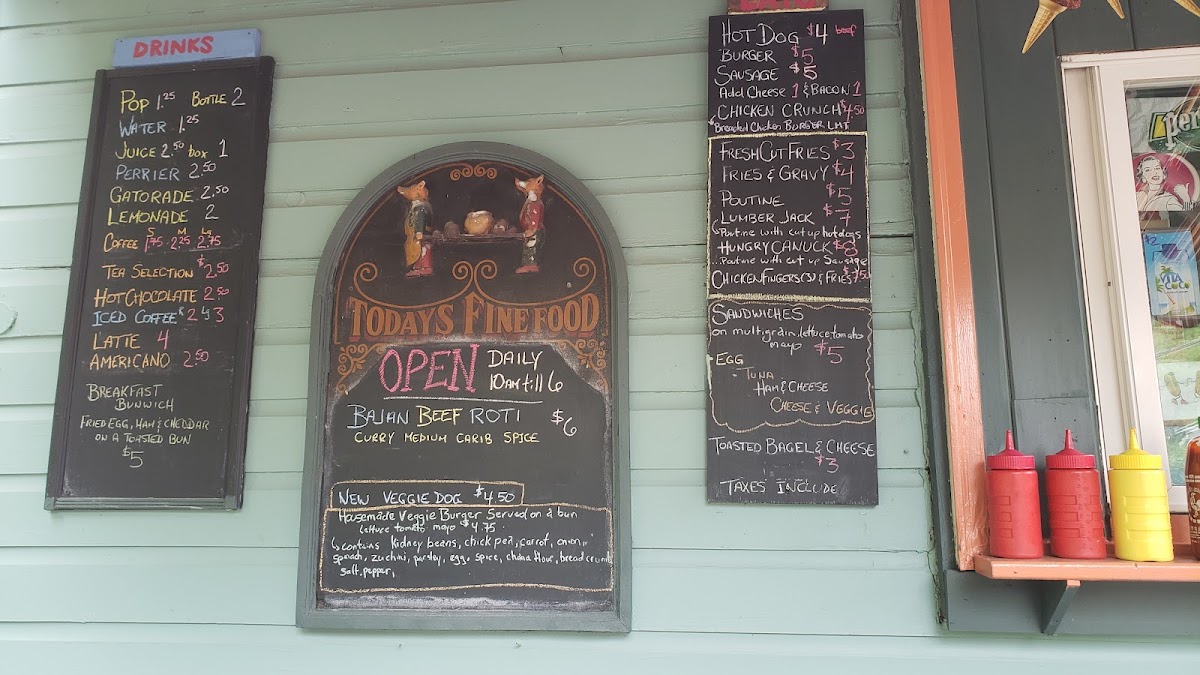 DRINKS
POP 1.25 BOTTLE 2
WATER 1.25
JUICE 2.50 box 1
PERRIER 2.50
GATORADE 2.50
LEMONADE 2
S M LG
COFFEE 1.75 2.25 2.75
TEA SELECTION $2.50
HOT CHOCOLATE 2.50
ICED COFFEE 2 & 3
LATTE 4
AMERICANO 2.50
BREAKFAST
BUNWICH
FRIED EGG, HAM & CHEDDAR
ON A TOASTED BUN
$5
TODAYS FINE FOOD
OPEN DAILY
10AM till 6
BAJAN BEEF ROTI $6
CURRY MEDIUM CARIB SPICE
NEW VEGGIE DOG $4.50
Housemade Veggie Burger Served on a bun
lettuce tomato mayo $4.75
contains kidney beans, chick pea, carrot, onion,
spinach, zuchini, parsley, egg, spice, chana flour, bread crumb
salt, pepper,
HOT DOG $4 beef
BURGER $5
SAUSAGE $5
Add Cheese 1 & BACON 1
CHICKEN CRUNCH $4.50
Breaded Chicken BURGER LMT
FRESH CUT FRIES $3
FRIES & GRAVY $4
POUTINE $5
LUMBER JACK $7
Poutine with cut up hotdogs
HUNGRY CANUCK $8
...Poutine with cut up Sausage
CHICKEN FINGERS (3) & FRIES $7.50
SANDWICHES
on multigrain, lettuce tomato
mayo $5
EGG
- TUNA
HAM & CHEESE
CHEESE & VEGGIE
TOASTED BAGEL & CHEESE
$3
TAXES INCLUDE
Perr
$2
VITA
COCO